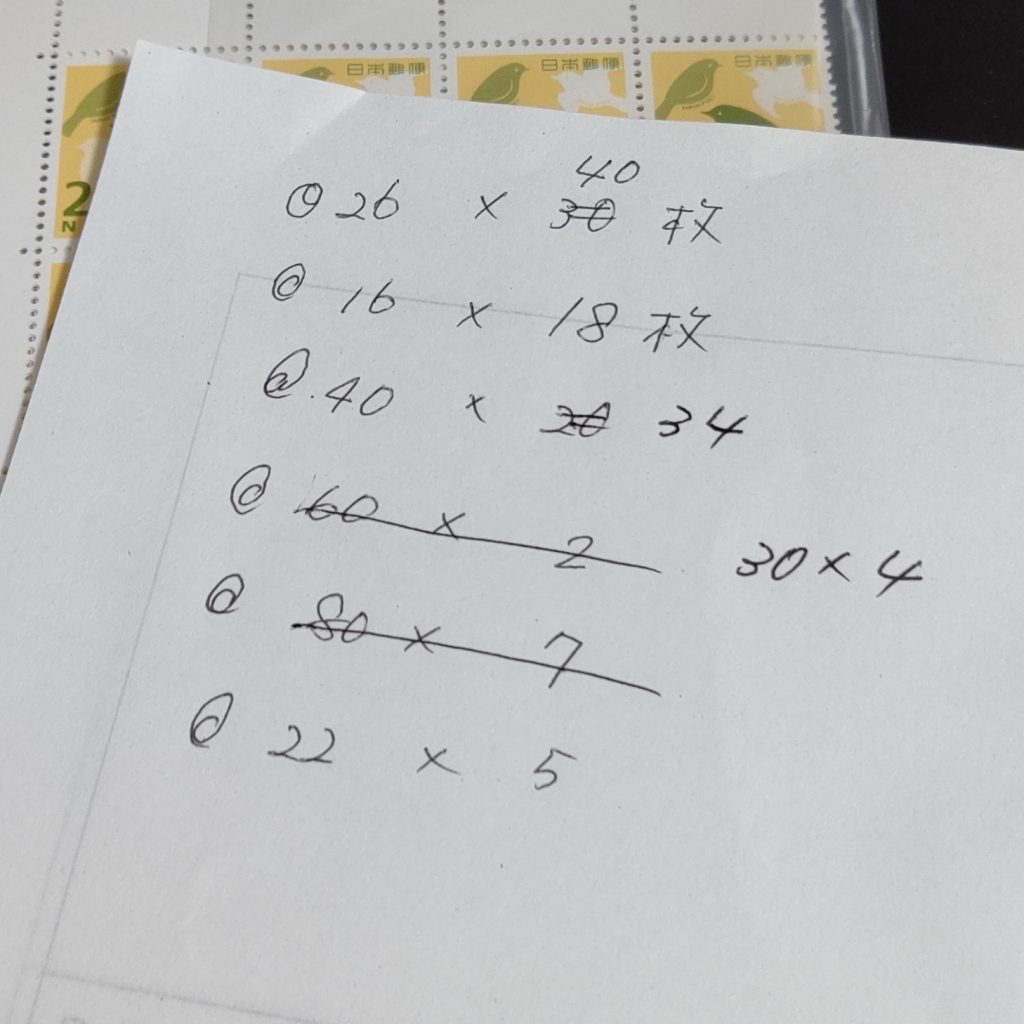 日本郵便 日本郵便 日本郵便
2
N
40
@ 26 × 30 枚
@ 16 × 18 枚
@ 40 × 20 34
@ 60 × 2 30×4
@ 80 × 7
@ 22 × 5